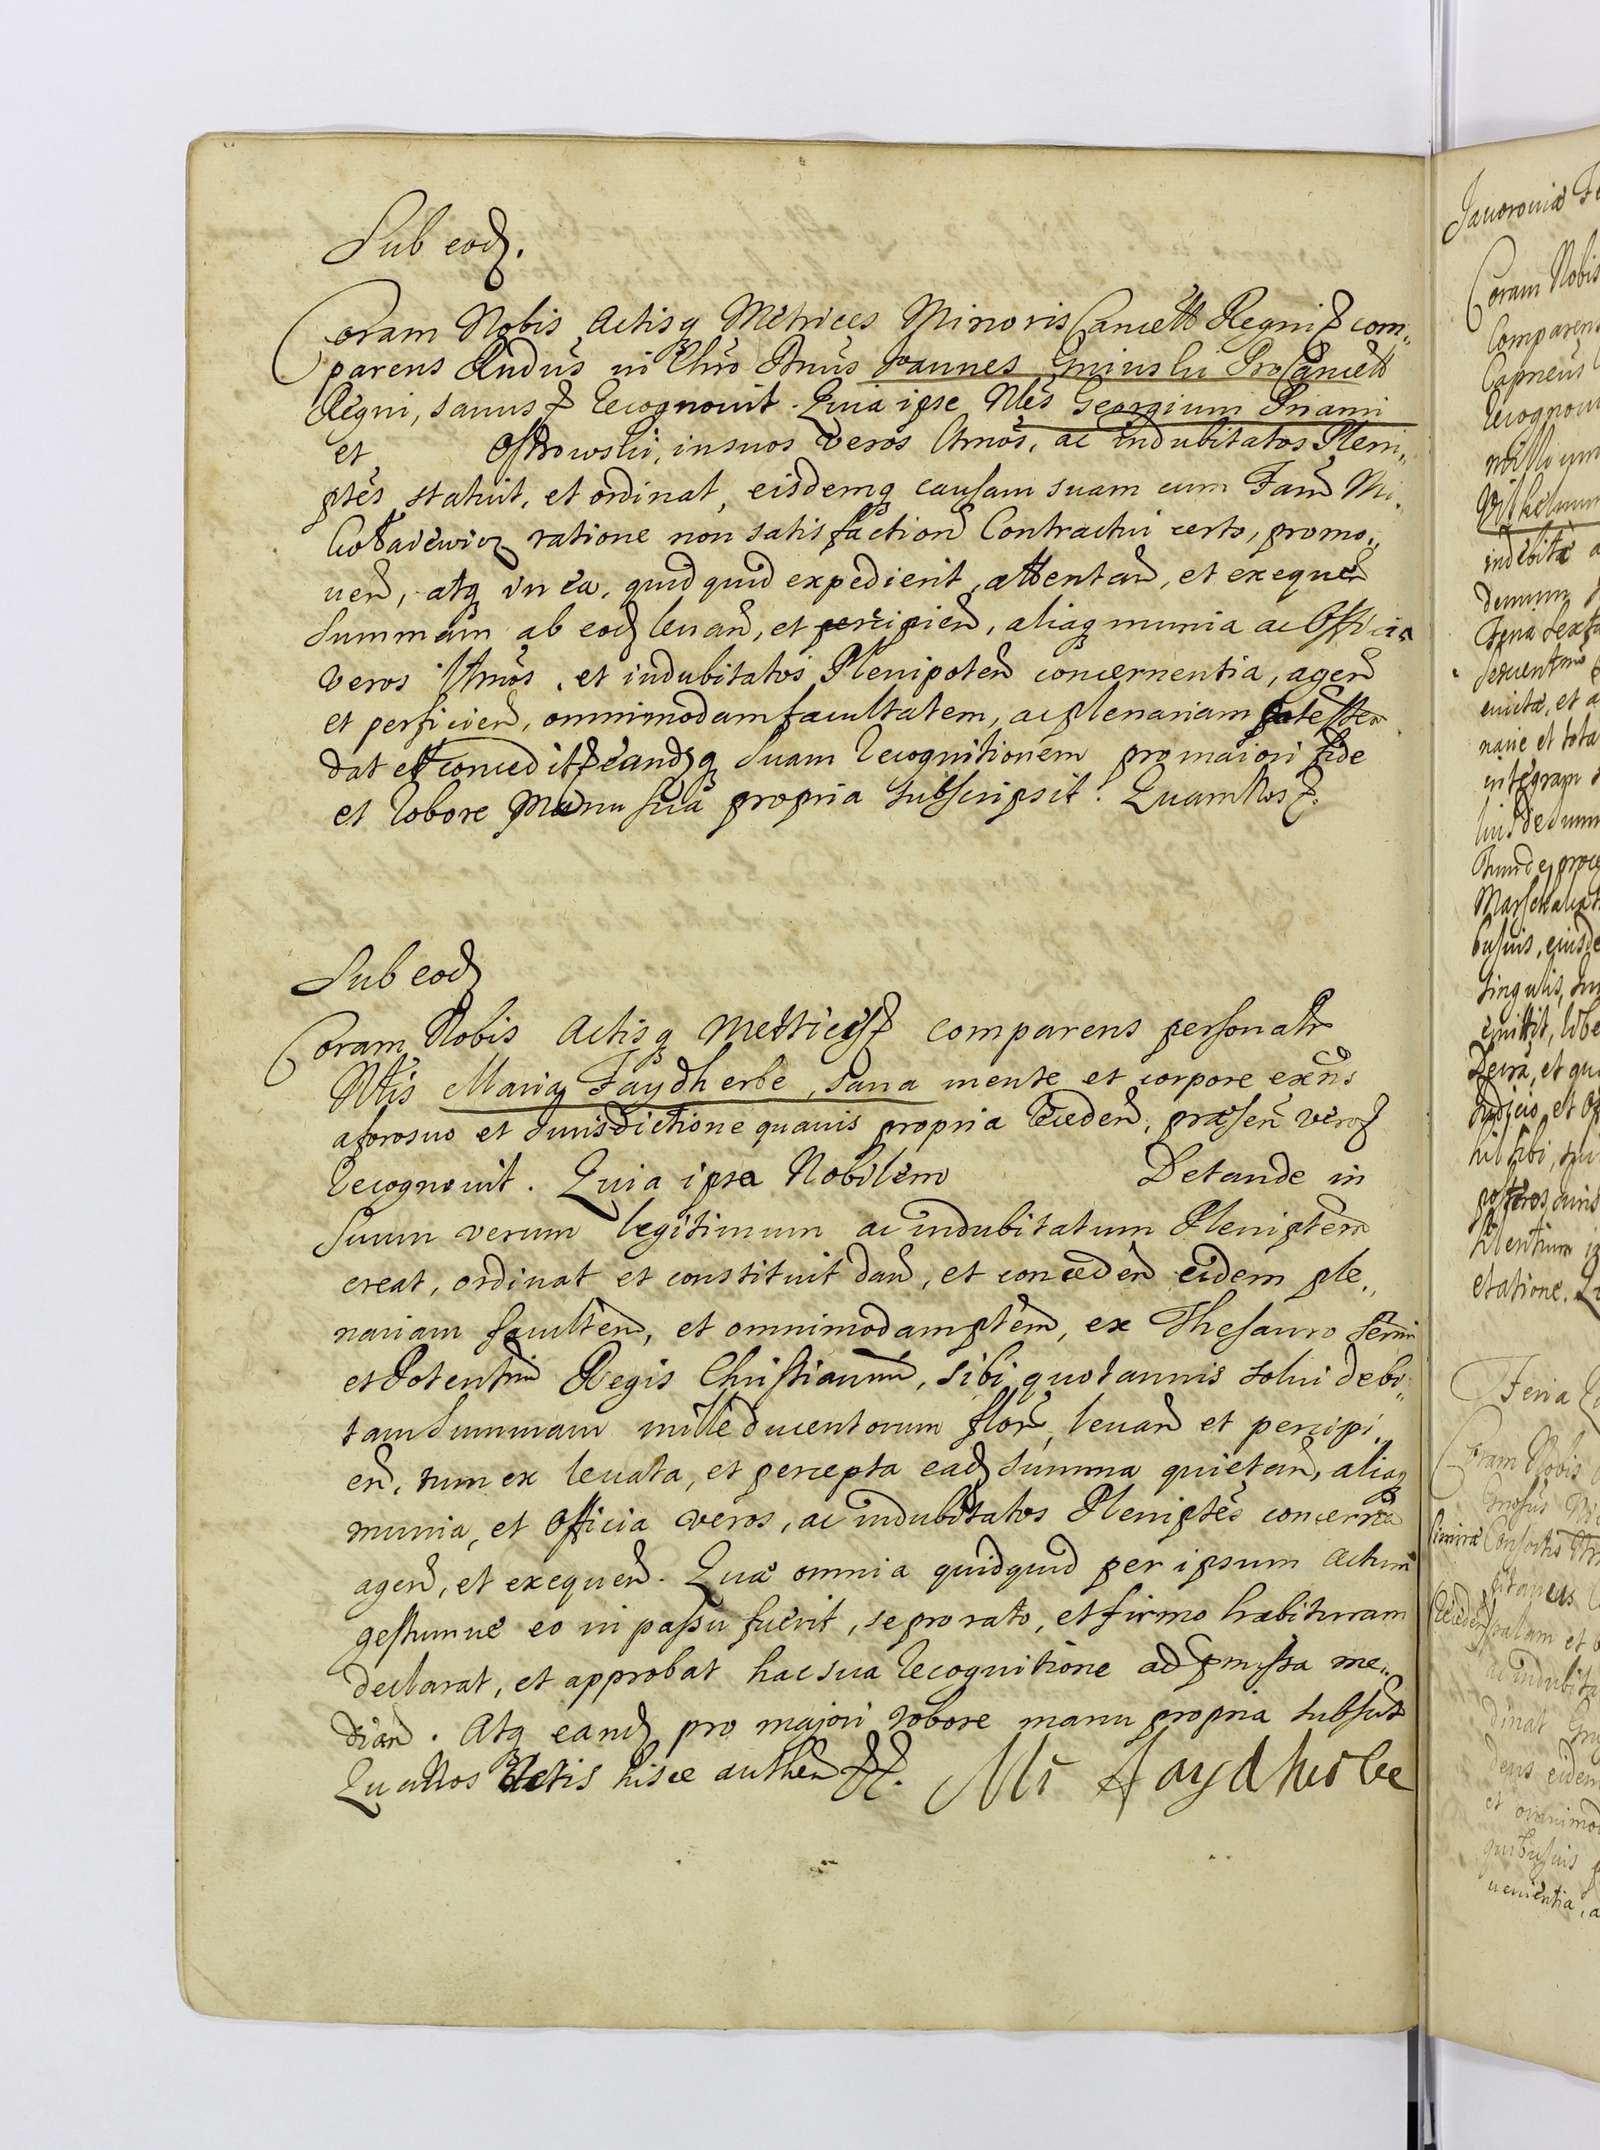 Sub eod.
Coram Nobis Actisq Metrices Minoris Cancell Regni & com„
parens Rndus in Chro Pnus Joannes Gninski ProCancell
Regni, sanus & recognouit. Quia ipse Nles Georgium Priami
et Ostrowski, in suos veros ltmos, ac indubitatos Pleni„
ptes statuit, et ordinat, eisdemq causam suam cum Fam Mi„
ratione non satisfaction Contractui certo, promo„
uen, atq in ea, quid quid expedierit, attentan, et exequen
Summam ab eod leuan, et percipien, aliaq munia ac Officia
veros ltmos, et indubitatos Plenipoten concernentia, agen
et perficien, omnimodam facultatem, ac plenariam potesten
dat et concedit & eandq suam recognitionem pro maiori fide
et robore manu sua propria subscripsit. Quam Nos &.
Sub eod
Coram Nobis Actisq Metrices & comparens personatr
Nlis Maria Faydherbe, sana mente et corpore exns
aforosuo et Jurisdictione quauis propria receden, præsen vero &
recognouit. Quia ipsa Nobilem Detande in
Suum verum legitimum ac indubitatum Pleniptem
creat, ordinat et constituit dan, et conceden eidem ple„
nariam facultem, et omnimodam ptem, ex Thesauro Sermi
et Potentmi Regis Christianmi, sibi quotannis solui debi„
tam Summam mille ducentorum flor, leuan et percipi„
en, tum ex leuata, et percepta ead summa quietan, aliaq
munia, et Officia veros, ac indubitatos Pleniptes concernen
agen, et exequen. Quæ omnia quidquid per ipsum actum
gestumue eo in passu fuerit, se pro rato, et firmo habituram
declarat, et approbat hac sua recognitione ad pmissa me„
dian. Atq eand pro majori robore manu propria subscr
Qua Nos Actis hisce authen &&. Mr Faydherbe
Javoroviæ Fe
Coram Nobis
Comparens
Capneus
recognou
milli um
Wilhelmum
indebitæ a
demum
Feria sexta
euictæ, et a
narie et tota
integram s
Marschalcat
busuis, eiusde
singulis, sum
emittit, libe
Judicio et Of
hil sibi, sui
posteros suris
silentium i
etatione. Qu
Feria
Coram Nobis
Consortis
Receden palam et
ac indubita
dinat Gn
dens eidem
et omnimod
quibusuis p
uenientia, a